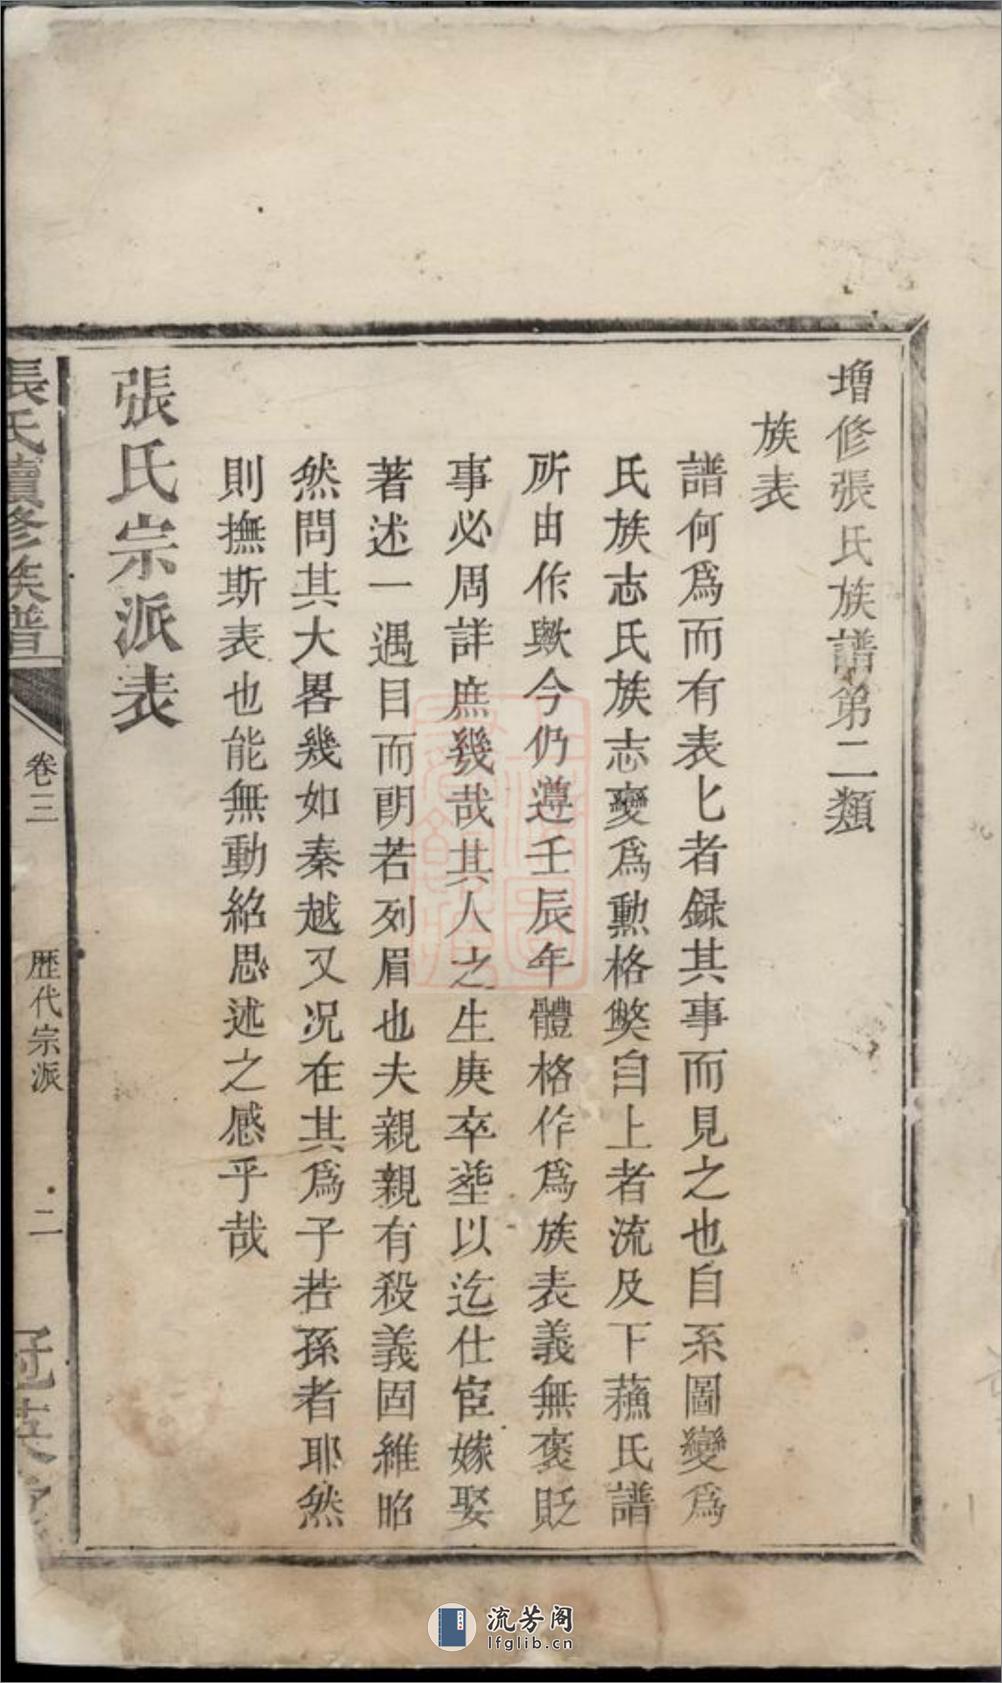 增修張氏族譜第二類
族表
譜何爲而有表匕者録其事而見之也自系圖變爲
氏族志氏族志變爲勲格獘自上者流及下蘓氏譜
所由作歟今仍遵壬辰年體格作爲族表義無褒貶
事必周詳庶幾哉其人之生庚卒塟以迄仕宦嫁娶
著述一遇目而朗若列眉也夫親親有殺義固維昭
然問其大畧幾如秦越又况在其爲子若孫者耶然
則撫斯表也能無動紹思述之感乎哉
張氏宗派表
張氏續修族譜
卷三
歷代宗派
二
冠英堂
流芳阁
lfglib.cn